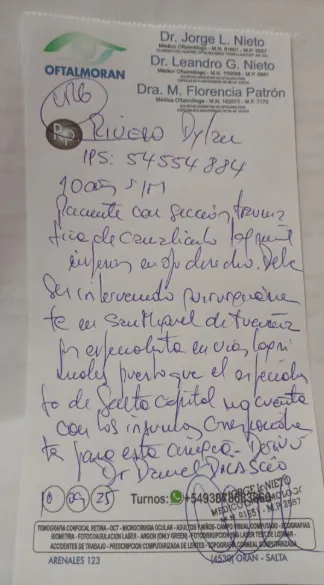 Dr. Jorge L. Nieto
Médico Oftalmólogo - M.N. 81651 - M.P. 2587
Dr. Leandro G. Nieto
Médico Oftalmólogo
Dra. M. Florencia Patrón
Médica Oftalmóloga
OFTALMORAN
Rp
Rivero Dylan
IPS: 54554884
10 años S/M
Paciente con sección trauma
tica de canalículo lagrimal
inferior en ojo derecho. Debe
ser intervenido quirurgicamen
te en San Miguel de Tucumán
por especialista en vias lagri
males puesto que el especialis
ta de Salta Capital no cuenta
con los insumos correspondien
te para esta cirugía. Derivo
Dr Daniel
09 25
Turnos:
JORGE L. NIETO
MEDICO OFTALMOLOGO
M.N. 81651 - M.P. 2587
TOMOGRAFIA CONFOCAL RETINA - OCT - MICROCIRUGIA OCULAR - ADULTOS Y NIÑOS - CAMPO VISUAL COMPUTADO - ECOGRAFIAS
BIOMETRIA - FOTOCOAGULACION LASER - ARGON (ONLY GREEN) - FOTODISRUPCION YAG LASER TEST DE LOTMAR -
ACCIDENTES DE TRABAJO - PRESCRIPCION COMPUTARIZADA DE LENTES - TOPOGRAFIA CORNEAL COMPUTARIZADA
ARENALES 123
(4530) ORAN - SALTA